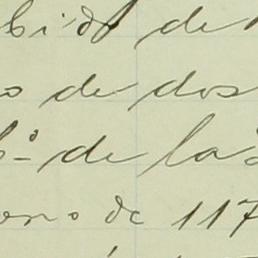 bido de
o de dos
bº de la
ono de 117